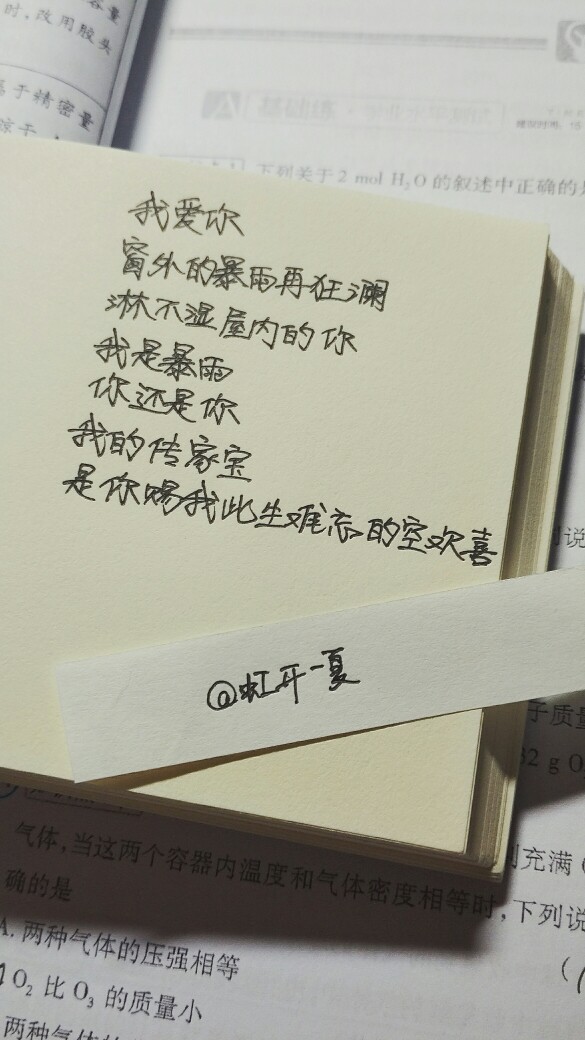 容量
时，改用胶头
属于精密量
下列关于2 mol H₂O 的叙述中正确的是
我爱你
窗外的暴雨再狂澜
淋不湿屋内的你
我是暴雨
你还是你
我的传家宝
是你赐我此生难忘的空欢喜
列说
@虹开一夏
子质量
32 g O
气体，当这两个容器内温度和气体密度相等时，下列说
充满
确的是
A. 两种气体的压强相等
O₂ 比 O₃ 的质量小
两种气体的